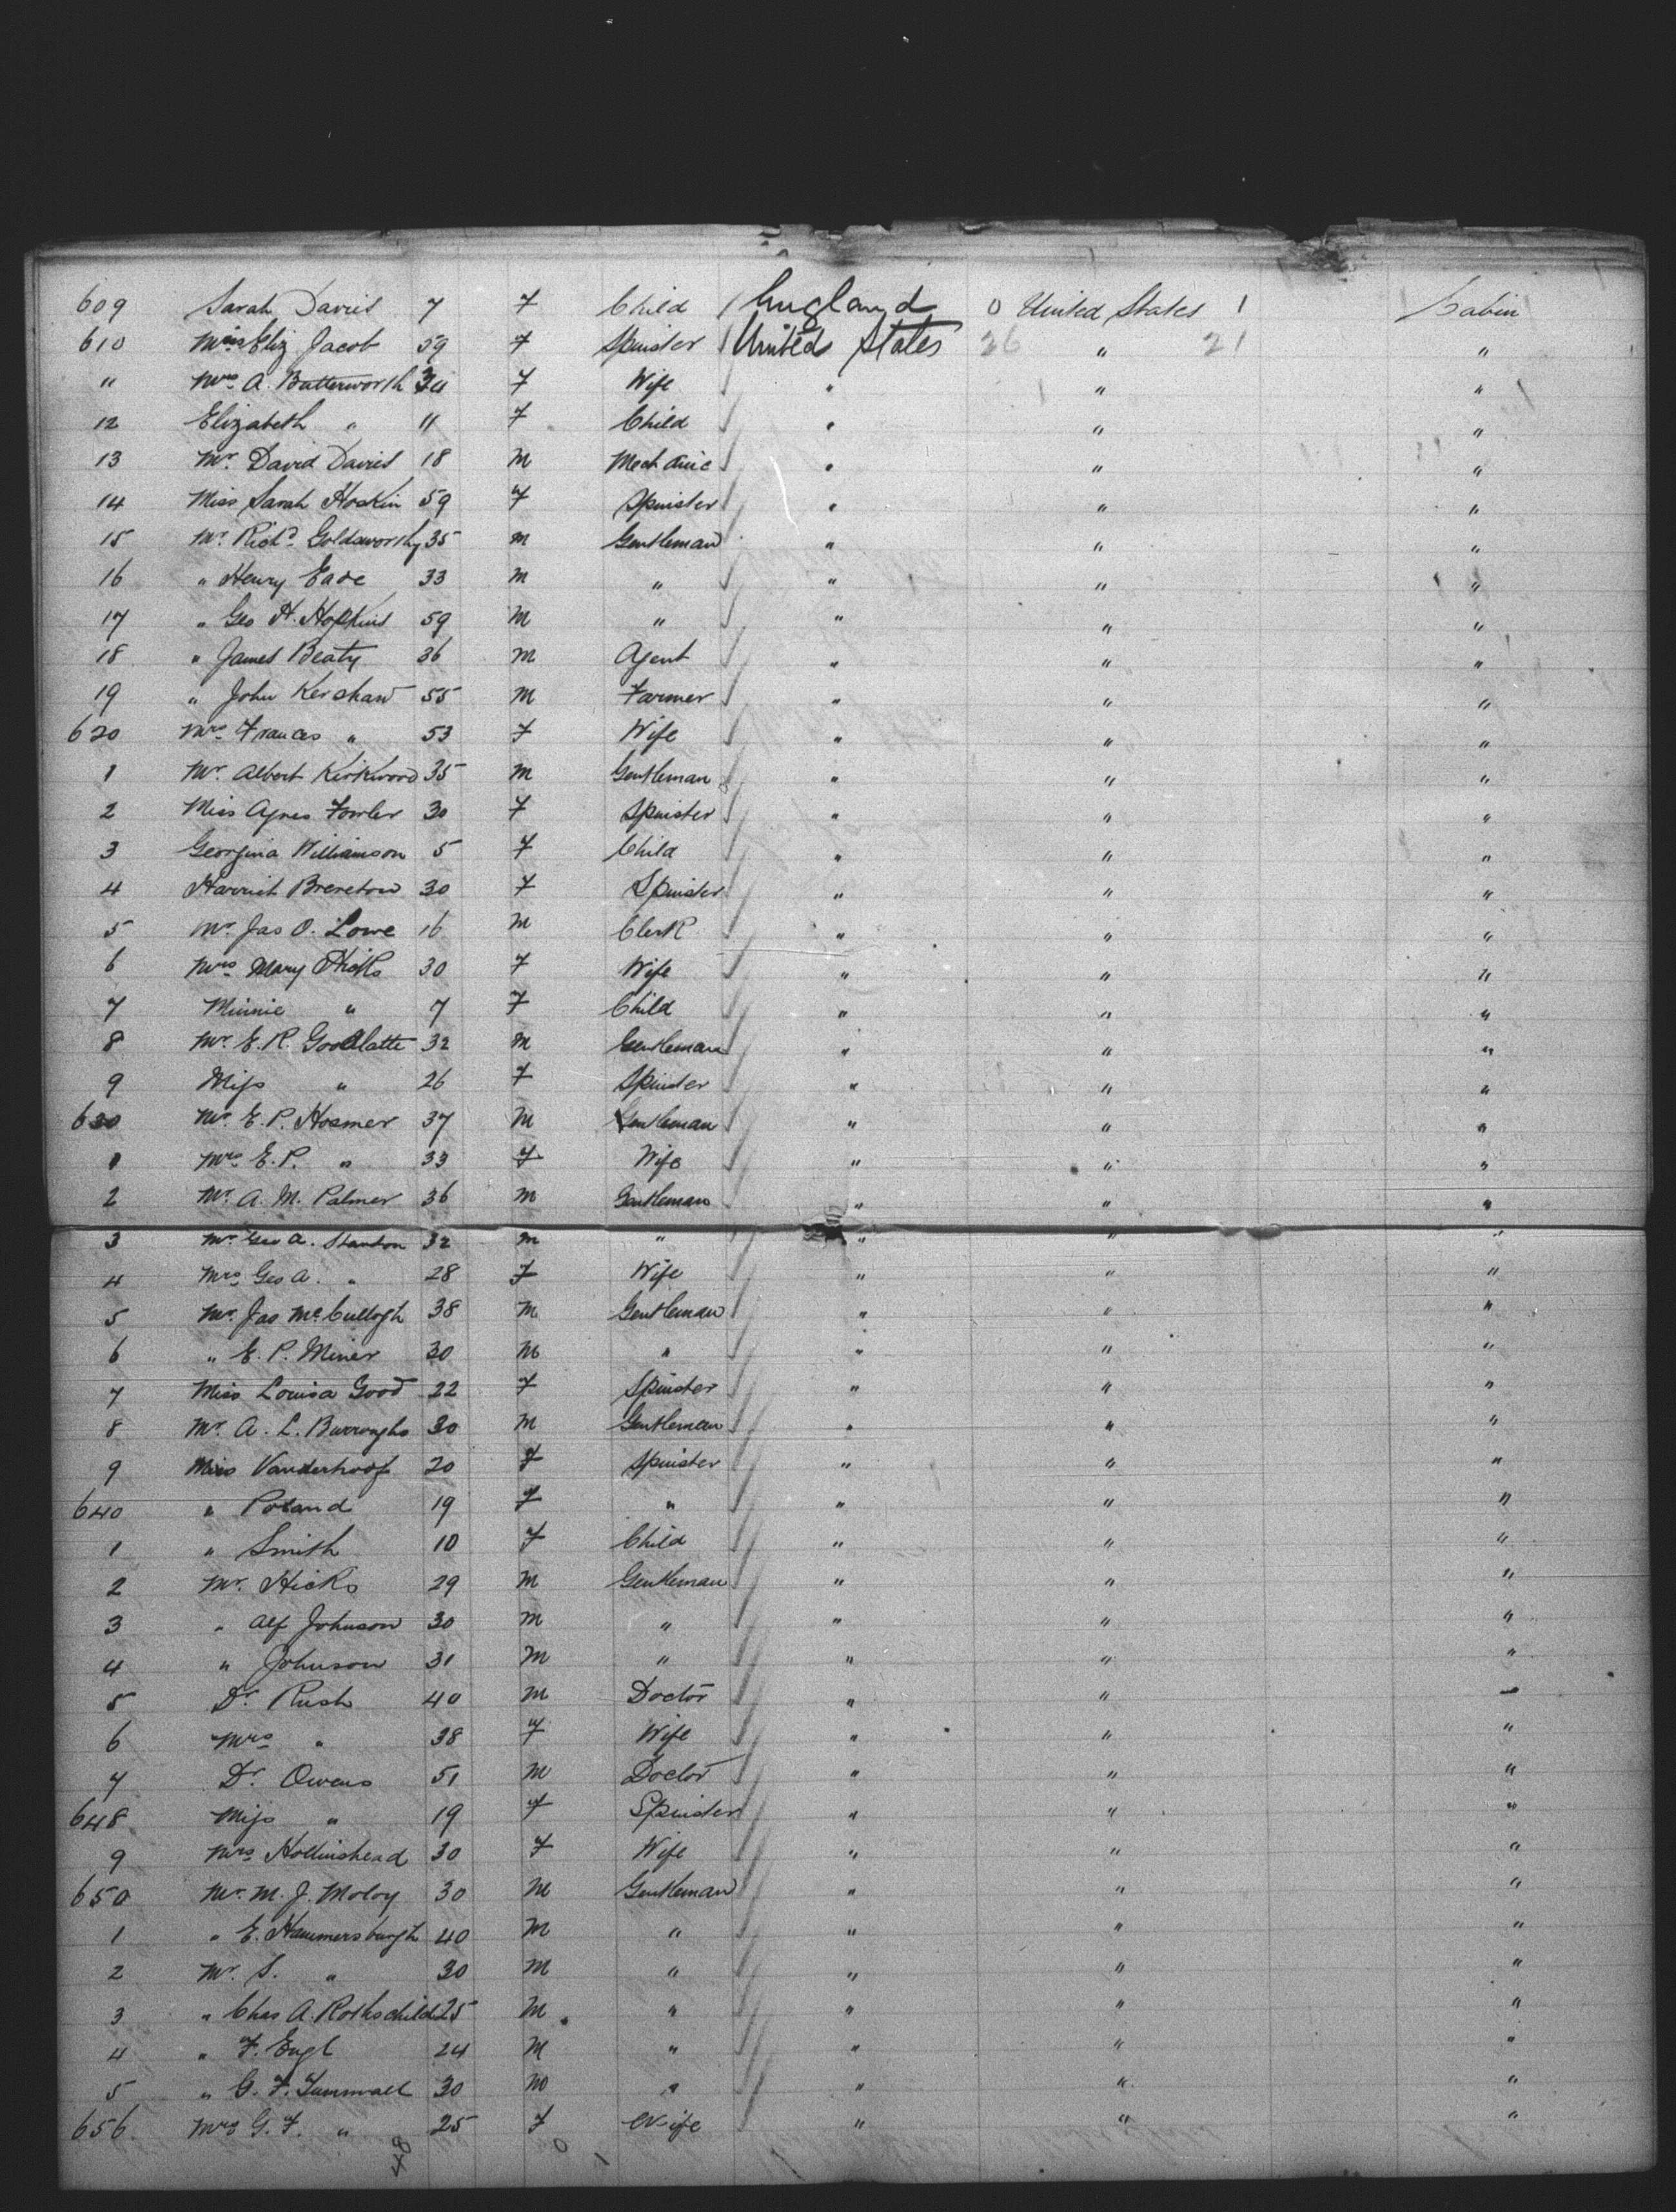 609 Sarah Davies 7 F Child / England 0 United States 1 Cabin
610 Miss Eliz Jacob 59 F Spinster / United States 26 " 21 "
" Mrs A. Butterworth F Wife " " "
12 Elizabeth " 11 F Child " " "
13 Mr. David Davies 18 M Mechanic " " "
14 Miss Sarah Hoskin 59 F Spinster " " "
15 Mr. Richd Goldsworthy 35 M Gentleman " " "
16 " Henry Eade 33 M " " " "
17 " Geo H. Hopkins 59 M " " " "
18 " James Beaty 36 M Agent " " "
19 " John Kershaw 55 M Farmer " " "
620 Mrs Frances " 53 F Wife " " "
1 Mr. Albert Kirkwood 35 M Gentleman " " "
2 Miss Agnes Fowler 30 F Spinster " " "
3 Georgina Williamson 5 F Child " " "
4 Harriet Brereton 30 F Spinster " " "
5 Mr. Jas O. Lowe 16 M Clerk " " "
6 Mrs Mary Hicks 30 F Wife " " "
7 Minnie " 7 F Child " " "
8 Mr. E. R. Goodlatte 32 M Gentleman " " "
9 Miss " 26 F Spinster " " "
630 Mr. E. P. Hosmer 37 M Gentleman " " "
1 Mrs E. P. " 33 F Wife " " "
2 Mr. A. M. Palmer 36 M Gentleman " " "
3 Mr Geo A. Stanton 32 M " " " "
4 Mrs Geo A. " 28 F Wife " " "
5 Mr. Jas McCullogh 38 M Gentleman " " "
6 " E. P. Miner 30 M " " " "
7 Miss Louisa Good 22 F Spinster " " "
8 Mr. A. L. Burroughs 30 M Gentleman " " "
9 Miss Vanderhoof 20 F Spinster " " "
640 " Poland 19 F " " " "
1 " Smith 10 F Child " " "
2 Mr. Hicks 29 M Gentleman " " "
3 " Alf Johnson 30 M " " " "
4 " Johnson 31 M " " " "
5 Dr. Rush 40 M Doctor " " "
6 Mrs " 38 F Wife " " "
7 Dr. Owens 51 M Doctor " " "
648 Miss " 19 F Spinster " " "
9 Mrs Hollinshead 30 F Wife " " "
650 Mr. M. J. Moloy 30 M Gentleman " " "
1 " E. Hammersburgh 40 M " " " "
2 Mr. S. " 30 M " " " "
3 " Chas A. Rothschild 25 M " " " "
4 " F. Engl 24 M " " " "
5 " G. F. 30 M " " " "
656 Mrs G. F. " 25 F Wife " " "
48 0 1